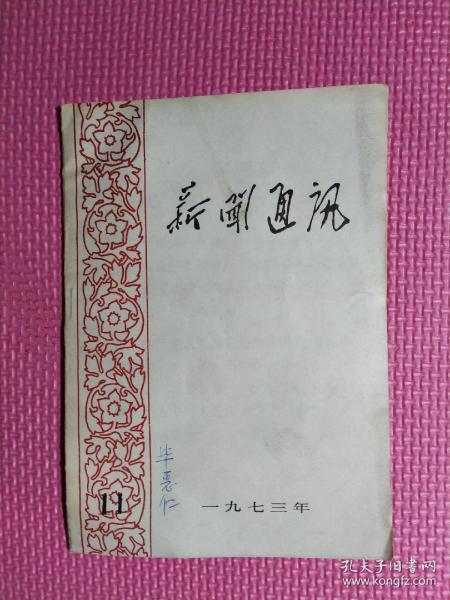 新闻通讯
毕惠仁
11
一九七三年
孔夫子旧书网
www.kongfz.com